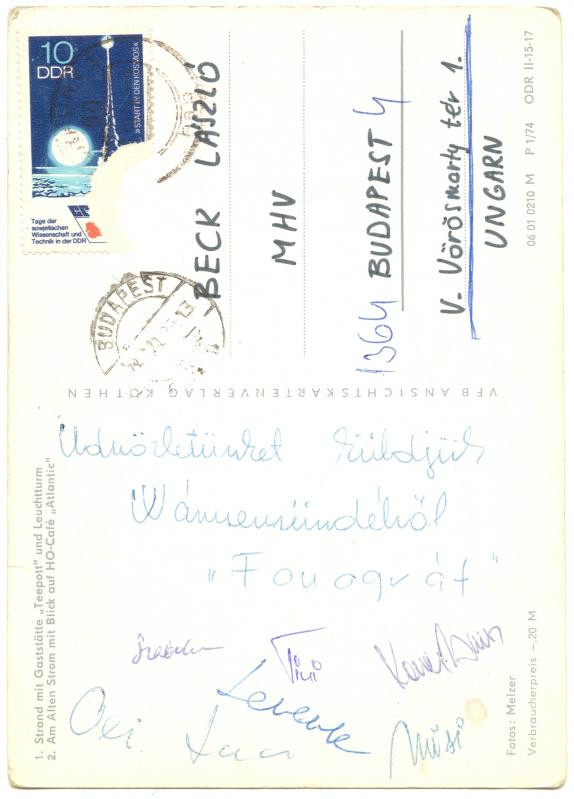 10
DDR
»START IN DEN KOSMOS«
Tage der
sowjetischen
Wissenschaft und
Technik in der DDR
BUDAPEST
BECK LÁSZLÓ
MHV
1364 BUDAPEST 4
V. Vörösmarty tér 1.
UNGARN
06 01 0210 M P 1/74 ODR II-15-17
VEB ANSICHTSKARTENVERLAG KÖTHEN
1. Strand mit Gaststätte „Teepott" und Leuchtturm
2. Am Alten Strom mit Blick auf HO-Café „Atlantic"
Üdvözletünket küldjük
Warnemündéből
"Fonográf"
Tini
Levente
Misi
Fotos: Melzer
Verbraucherpreis –,20 M